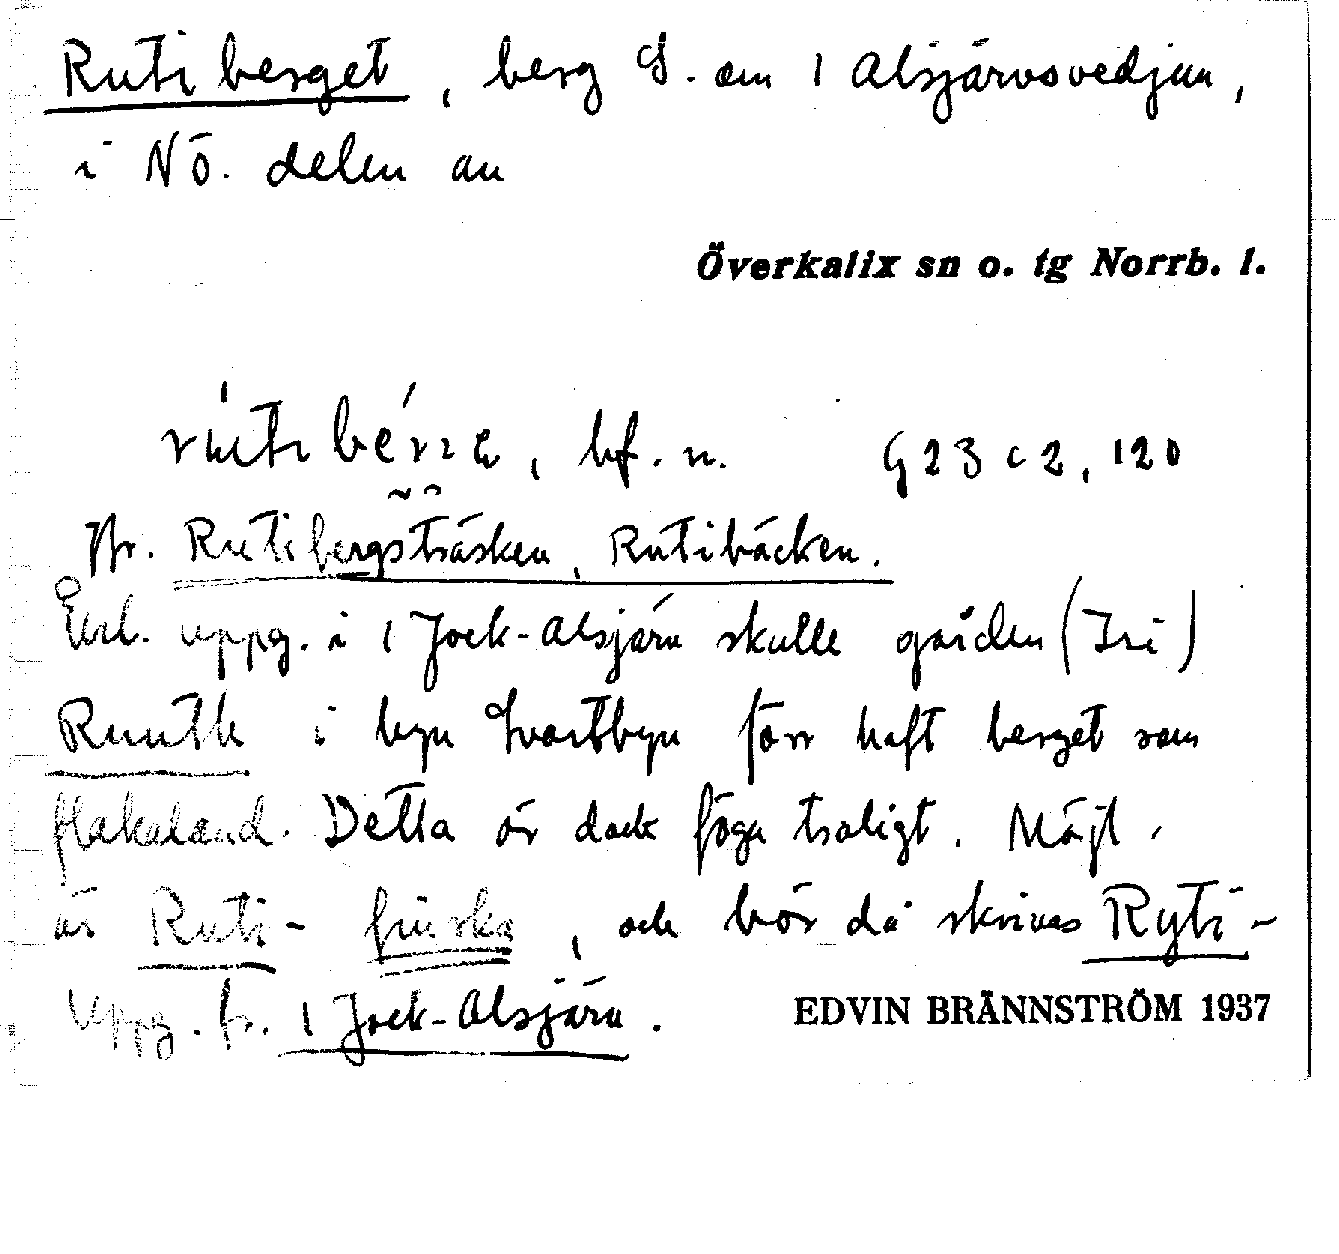 Rutiberget, berg S. om 1 Alsjärvsvedjan,
i NÖ. delen av
Överkalix sn o. tg Norrb. l.
bf. n. G 23 c 2, 120
Jfr. Rutibergsträsken, Rutibäcken.
Enl. uppg. i 1 Jock-Alsjärv skulle gården (Iri)
Ruuth i byn Svartbyn förr haft berget som
flakaland. Detta är dock föga troligt. Möjl.
är Ruti- finska, och bör då skrivas Ryti-
Uppg. fr. 1 Jock-Alsjärv.
EDVIN BRÄNNSTRÖM 1937